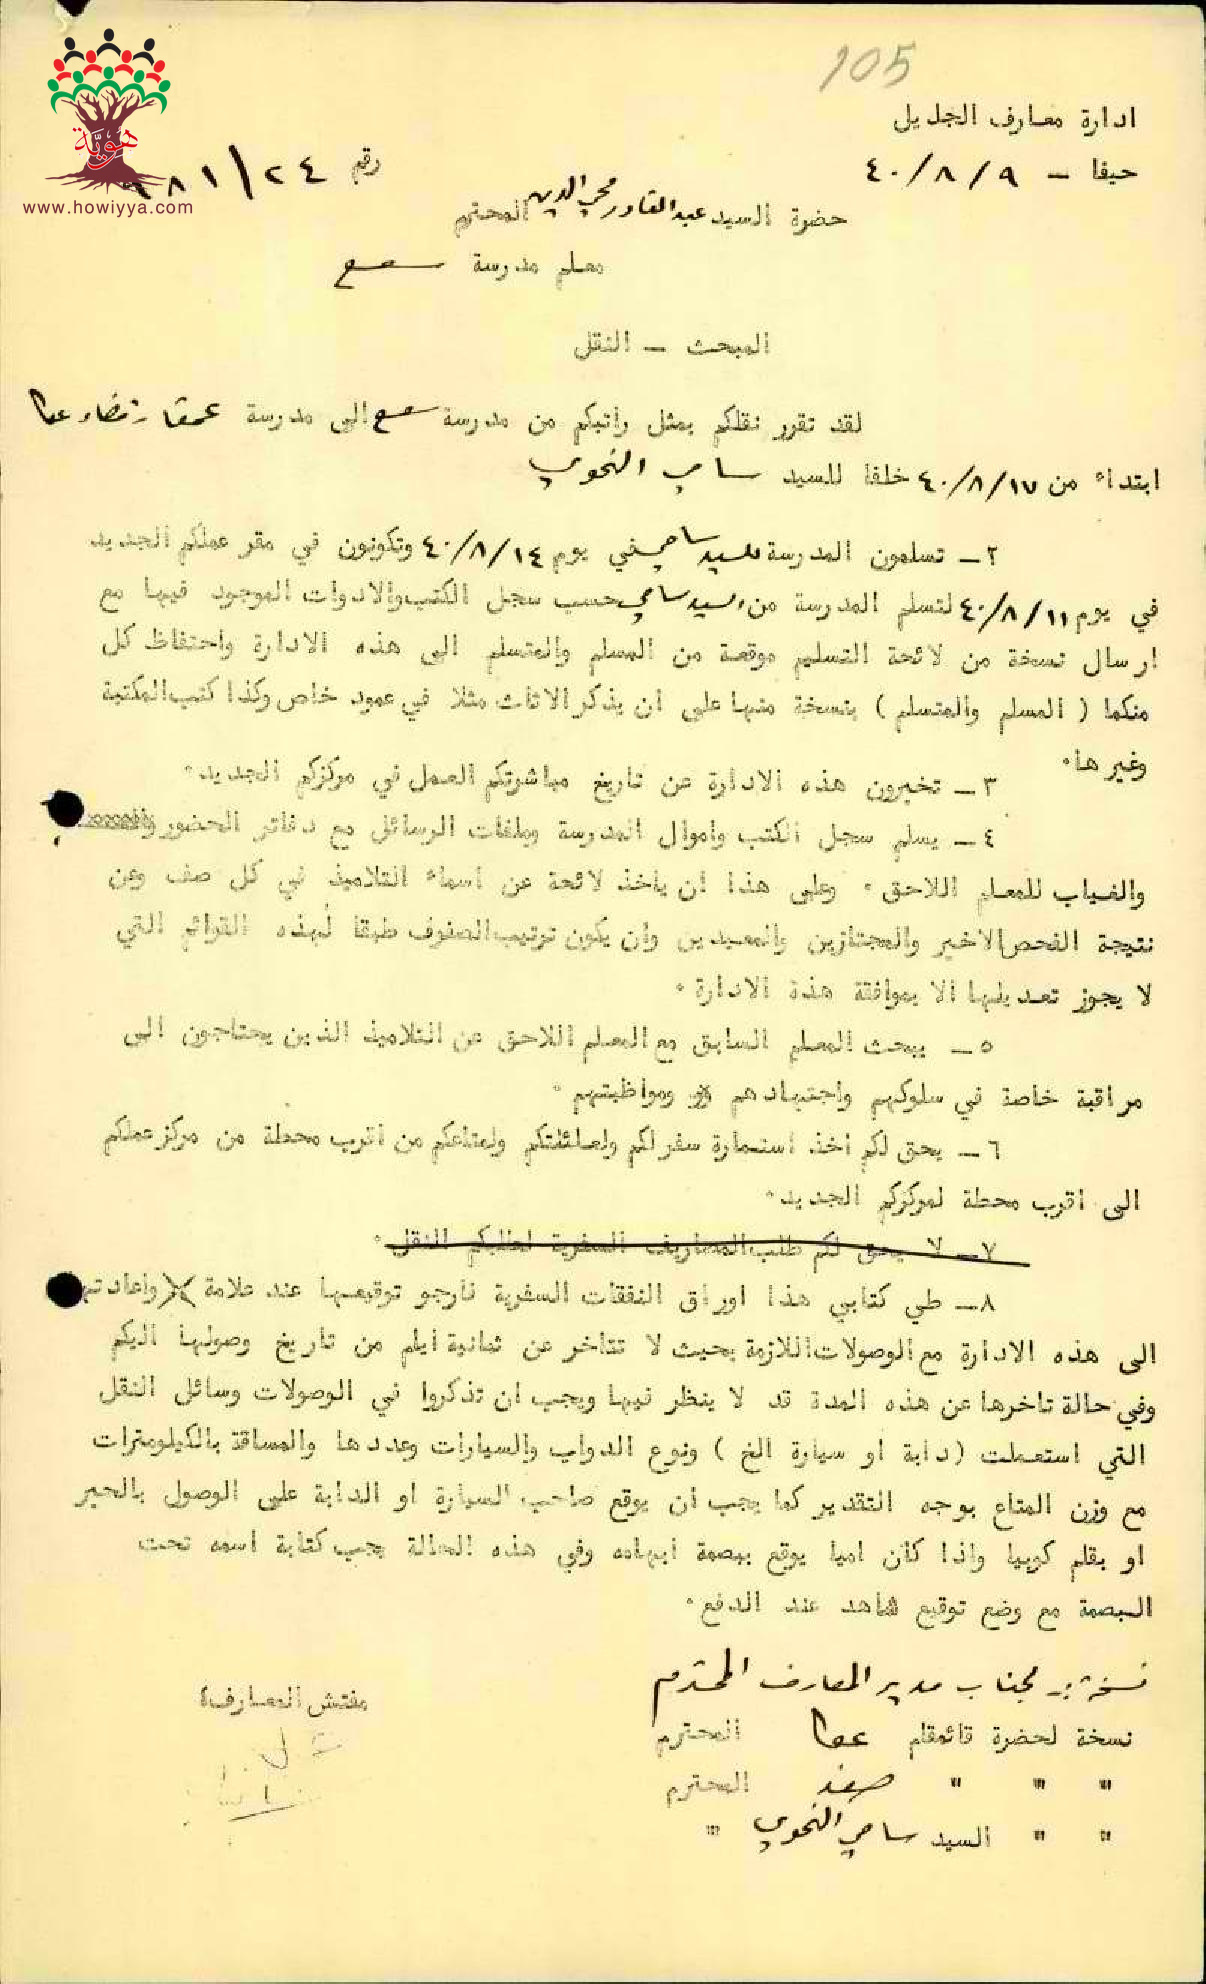 105
هوية
www.howiyya.com
ادارة معارف الجليل
حيفا - ٤٠/٨/٩
رقم ٩٨١/٢٤
حضرة السيد عبد القادر محي الدين المحترم
معلم مدرسة سعسع
المبحث - النقل
لقد تقرر نقلكم بمثل راتبكم من مدرسة سعسع الى مدرسة عمقا قضاء عكا
ابتداء من ٤٠/٨/١٧ خلفا للسيد سامي النحوي
٢- تسلمون المدرسة للسيد سامي في يوم ٤٠/٨/١٤ وتكونون في مقر عملكم الجديد
في يوم ٤٠/٨/١١ لتسلم المدرسة من السيد سامي حسب سجل الكتب والادوات الموجود فيها مع
ارسال نسخة من لائحة التسليم موقعة من المسلم والمتسلم الى هذه الادارة واحتفاظ كل
منكما ( المسلم والمتسلم ) بنسخة منها على ان يذكر الاثاث مثلا في عمود خاص وكذا كتب المكتبة
وغيرها٠
٣- تخبرون هذه الادارة عن تاريخ مباشرتكم العمل في مركزكم الجديد٠
٤- يسلم سجل الكتب واموال المدرسة وملفات الرسائل مع دفاتر الحضور
والغياب للمعلم اللاحق ٠ وعلى هذا ان ياخذ لائحة عن اسماء التلاميذ في كل صف وعن
نتيجة الفحص الاخير والمجتازين والمعيدين وان يكون ترتيب الصفوف طبقا لهذه القوائم التي
لا يجوز تعديلها الا بموافقة هذه الادارة ٠
٥- يبحث المعلم السابق مع المعلم اللاحق عن التلاميذ الذين يحتاجون الى
مراقبة خاصة في سلوكهم واجتهادهم ومواظبتهم ٠
٦- يحق لكم اخذ استمارة سفر لكم ولعائلتكم ولمتاعكم من اقرب محطة من مركز عملكم
الى اقرب محطة لمركزكم الجديد٠
٧- لا يحق لكم طلب المصاريف السفرية لطلبكم النقل ٠
٨- طي كتابي هذا اوراق النفقات السفرية نارجو توقيعها عند علامة X واعادتها
الى هذه الادارة مع الوصولات اللازمة بحيث لا تتاخر عن ثمانية ايام من تاريخ وصولها اليكم
وفي حالة تاخرها عن هذه المدة قد لا ينظر فيها ويجب ان تذكروا في الوصولات وسائل النقل
التي استعملت (دابة او سيارة الخ ) ونوع الدواب والسيارات وعددها والمسافة بالكيلومترات
مع وزن المتاع بوجه التقدير كما يجب ان يوقع صاحب السيارة او الدابة على الوصول بالحبر
او بقلم كوبيا واذا كان اميا يوقع ببصمة ابهامه وفي هذه الحالة يجب كتابة اسمه تحت
البصمة مع وضع توقيع شاهد عند الدفع٠
نسخة لجناب مدير المعارف المحترم
مفتش المعارف
نسخة لحضرة قائمقام عكا المحترم
" " " صفد المحترم
" " السيد سامي النحوي "